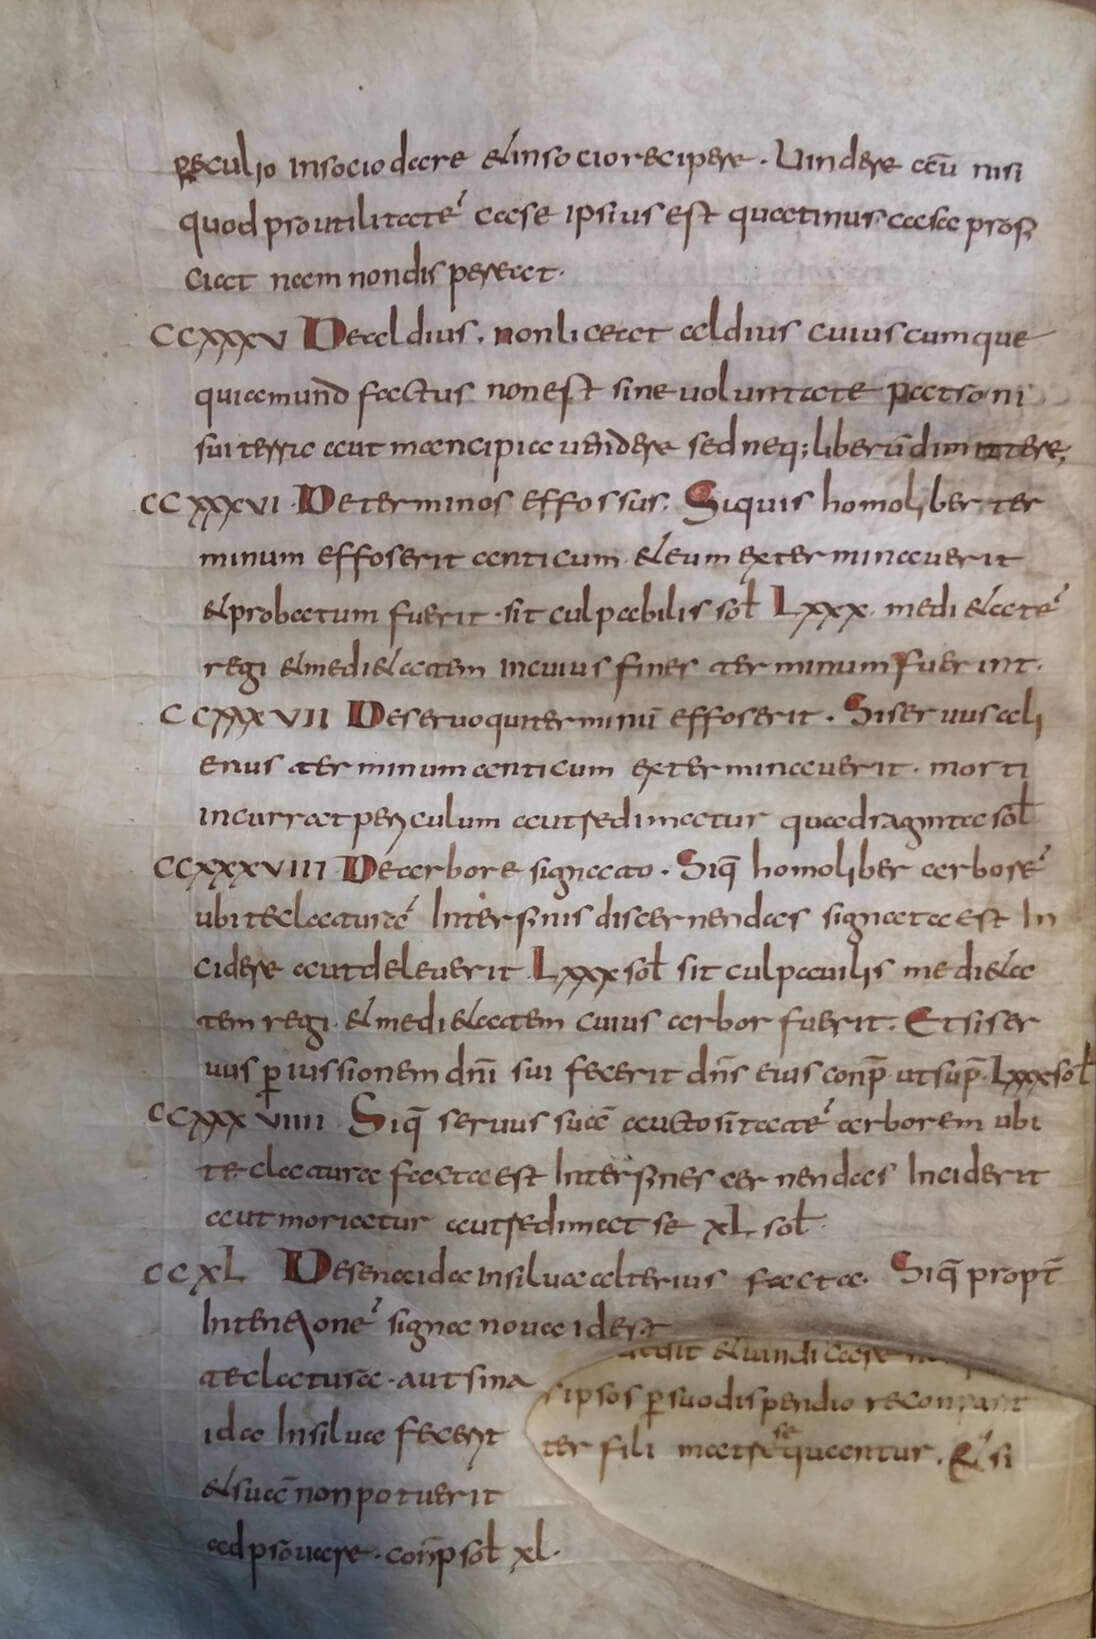 peculio insociodare et insociorecipere. Uindere aũ nisi
quod proutilitatẽ case ipsius est quatinus casa profi
ciat nam nondispereat.
CCXXXV Dealdius. nonliceat aldius cuiuscumque
quiamund factus nonest sine uoluntate patroni
sui terra aut mancipia uendere sed neq; liberũ dimittere;
CCXXXVI. De terminos effossus. Siquis homo liber ter
minum effoserit anticum et eum exterminauerit
et probatum fuerit. sit culpabilis soł LXXX. medietatẽ
regi et medietatem incuius fines terminum fuerint.
CCXXXVII Deseruo qui terminũ effoserit. Siseruus ali
enus terminum anticum exterminauerit. morti
incurrat periculum aut redimatur quadraginta soł
CCXXXVIII De arbore signato. Siq̃ homo liber arborẽ
ubi teclaturã Interfinis discernendas signata est In
cidere aut deleuerit LXXX soł sit culpauilis medieta
tem regi. et medietatem cuius arbor fuerit. Et si ser
uus ꝑ iussionem dñi sui fecerit dñs eius conp̃ ut sup̃ LXXX soł
CCXXXVIIII Siq̃ seruus suã auctoritatẽ arborem ubi
teclatura facta est Interfines cernendas Inciderit
aut moriatur aut redimat se XL soł
CCXL De senaida insilua alterius facta. Siq̃ propt̃
Intentionẽ signa noua idest
teclaturã. aut sina
ida Insilua fecerit
et suã non potuerit
adprouare. conp̃ soł xl.
et uindicare
sipsos ꝑ suo dispendio reconpant
ter fili mat se quantur. Et si